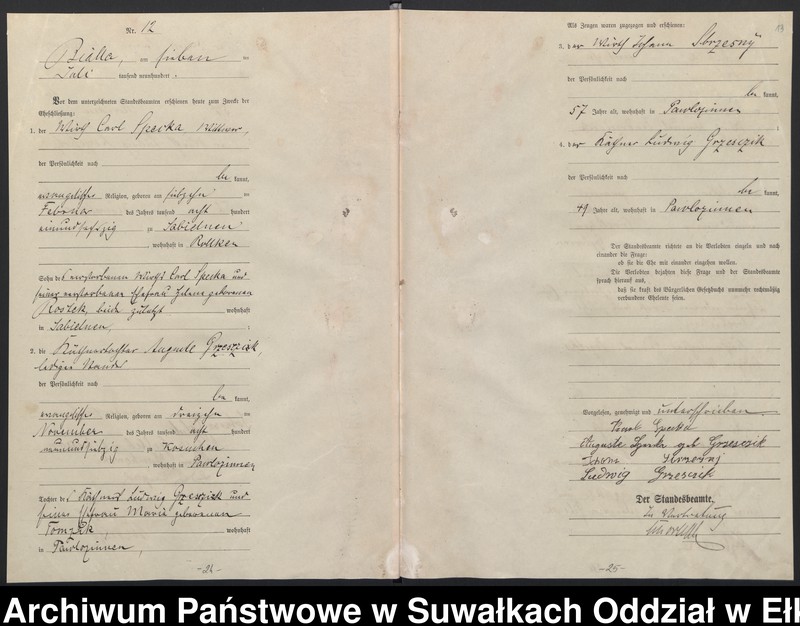 Nr. 12
Bialla, am sieben ten
Juli tausend neunhundert
Vor dem unterzeichneten Standesbeamten erschienen heute zum Zwecke der
Eheschließung:
1. der Wirth Carl Specka, Wittwer,
der Persönlichkeit nach
be kannt,
evangelischer Religion, geboren am siebzehn ten
Februar des Jahres tausend acht hundert
einundsechszig zu Sabielnen
, wohnhaft in Rollken
Sohn des verstorbenen Wirths Carl Specka und
seiner verstorbenen Ehefrau geborenen
beide zuletzt wohnhaft
in Sabielnen,
2. die Käthnertochter Auguste Grzesczik,
ledigen Standes
der Persönlichkeit nach
be kannt,
evangelischer Religion, geboren am dreizehn ten
November des Jahres tausend acht hundert
neunundsiebzig zu
, wohnhaft in Pawlozinnen
Tochter des Käthners Ludwig Grzesczik und
seiner Ehefrau Marie geborenen
Tomzik wohnhaft
in Pawlozinnen,
-24-
Als Zeugen waren zugezogen und erschienen:
13
3. der Wirth Johann
der Persönlichkeit nach
be kannt,
57 Jahre alt, wohnhaft in Pawlozinnen
4. der Käthner Ludwig Grzesczik
der Persönlichkeit nach
be kannt,
49 Jahre alt, wohnhaft in Pawlozinnen
Der Standesbeamte richtete an die Verlobten einzeln und nach
einander die Frage:
ob sie die Ehe mit einander eingehen wollen.
Die Verlobten bejahten diese Frage und der Standesbeamte
sprach hierauf aus,
daß sie kraft des Bürgerlichen Gesetzbuchs nunmehr rechtmäßig
verbundene Eheleute seien.
Vorgelesen, genehmigt und unterschrieben
Karl Specka
Auguste Specka geb. Grzesczik
Ludwig Grzesczik
Der Standesbeamte.
In Vertretung
-25-
Archiwum Państwowe w Suwałkach Oddział w Ełk